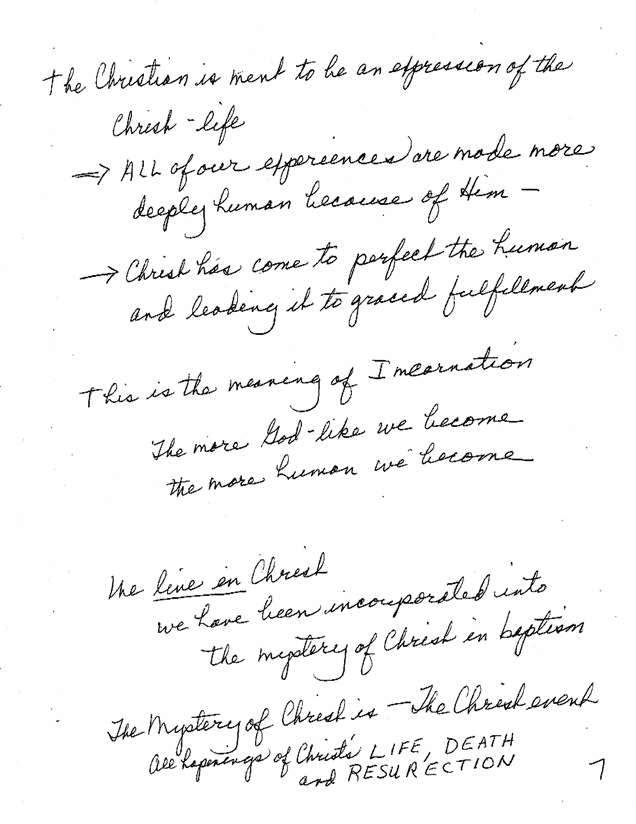 The Christian is ment to be an expression of the
Christ-life
⇒ ALL of our experiences) are made more
deeply human because of Him —
→ Christ has come to perfect the human
and leading it to graced fulfillment
This is the meaning of Incarnation
The more God-like we become
the more human we become
We live in Christ
we have been incorporated into
the mystery of Christ in baptism
The Mystery of Christ is — The Christ event
all hapenings of Christ's LIFE, DEATH
and RESURECTION
7